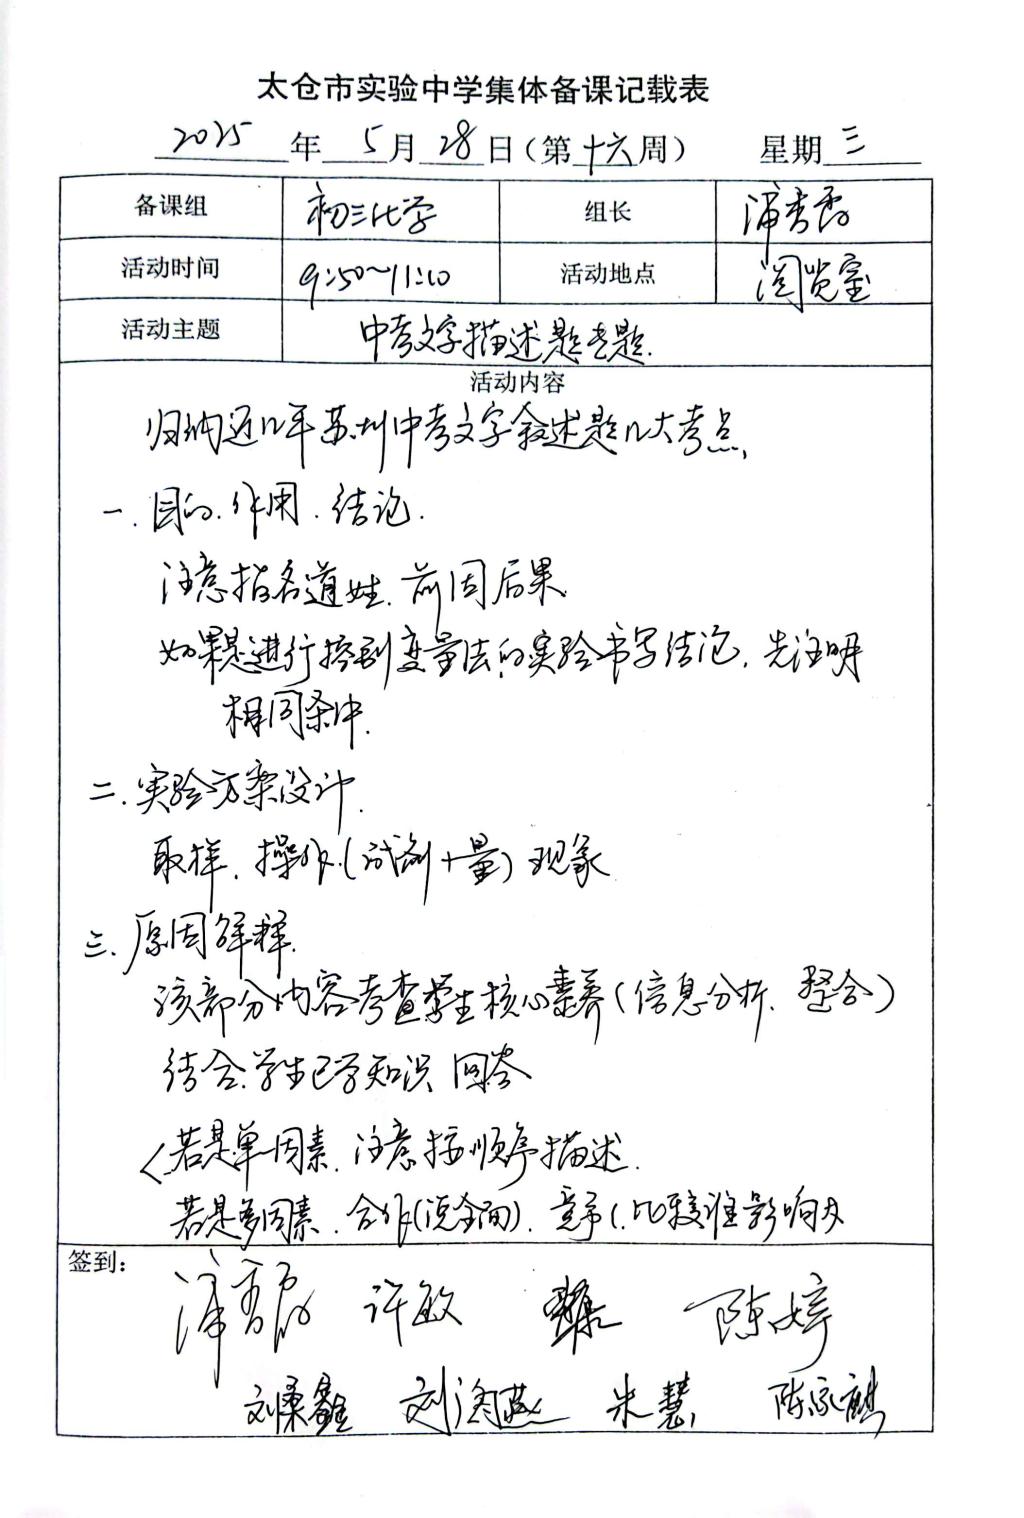 太仓市实验中学集体备课记载表
2025年5月28日（第十六周） 星期三
备课组 初三化学 组长
活动时间 9:50~11:10 活动地点 阅览室
活动主题 中考文字描述题专题.
活动内容
归纳近几年苏州中考文字叙述题几大考点.
一. 目的.作用.结论.
注意指名道姓. 前因后果.
如果是进行控制变量法的实验书写结论, 先注明
相同条件.
二. 实验方案设计.
取样. 操作.(试剂+量) 现象
三. 原因解释.
该部分内容考查学生核心素养(信息分析. 整合)
结合学生已学知识 回答
若是单因素. 注意按顺序描述.
若是多因素. 合作(说全面). 竞争(比较谁影响大
签到:
许敏 陈婷
刘桑鑫 朱慧